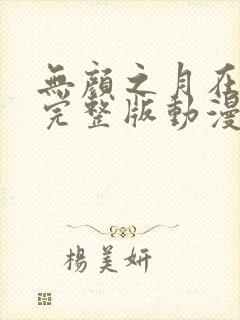 無顏之月在
完整版動漫
楊美妍